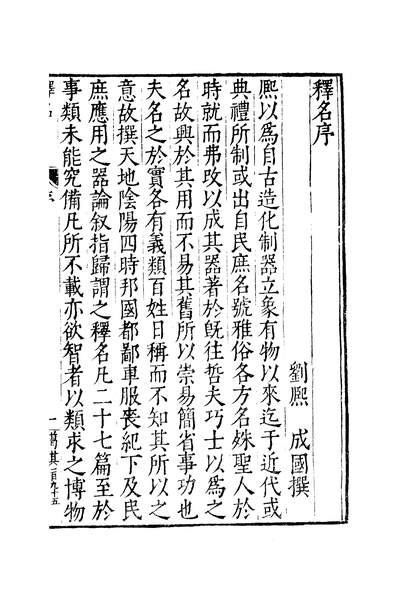 釋名序
劉熈 成國撰
熈以爲自古造化制器立象有物以來迄于近代或
典禮所制或出自民庶名號雅俗各方名殊聖人於
時就而弗改以成其器著於旣往哲夫巧士以爲之
名故興於其用而不易其舊所以崇易簡省事功也
夫名之於實各有義類百姓日稱而不知其所以之
意故撰天地陰陽四時邦國都鄙車服喪紀下及民
庶應用之器論叙指歸謂之釋名凡二十七篇至於
事類未能究備凡所不載亦欲智者以類求之博物